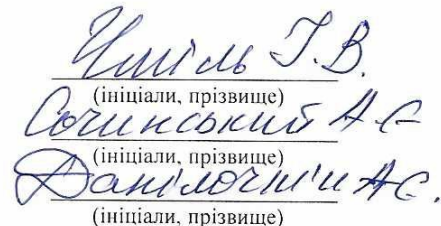 Чміль Т.В.
(ініціали, прізвище)
Сочинський А Є
(ініціали, прізвище)
А Є.
(ініціали, прізвище)